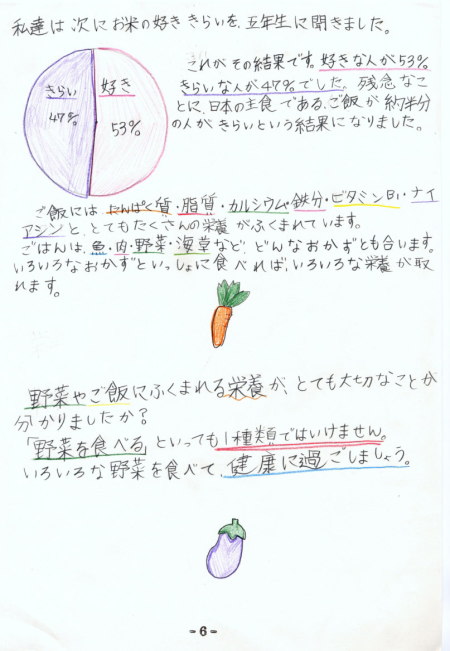 私達は次にお米の好ききらいを、五年生に聞きました。
きらい
47%
好き
53%
これがその結果です。好きな人が53%
きらいな人が47%でした。残念なこ
とに、日本の主食である、ご飯が約半分
の人が、きらいという結果になりました。
ご飯にはたんぱく質・脂質・カルシウム・鉄分・ビタミンB1・ナイ
アシンと、とてもたくさんの栄養がふくまれています。
ごはんは、魚・肉・野菜・海草など、どんなおかずとも合います。
いろいろなおかずといっしょに食べれば、いろいろな栄養が取
れます。
野菜やご飯にふくまれる栄養が、とても大切なことが
分かりましたか?
「野菜を食べる」といっても1種類ではいけません。
いろいろな野菜を食べて、健康に過ごしましょう。
-6-